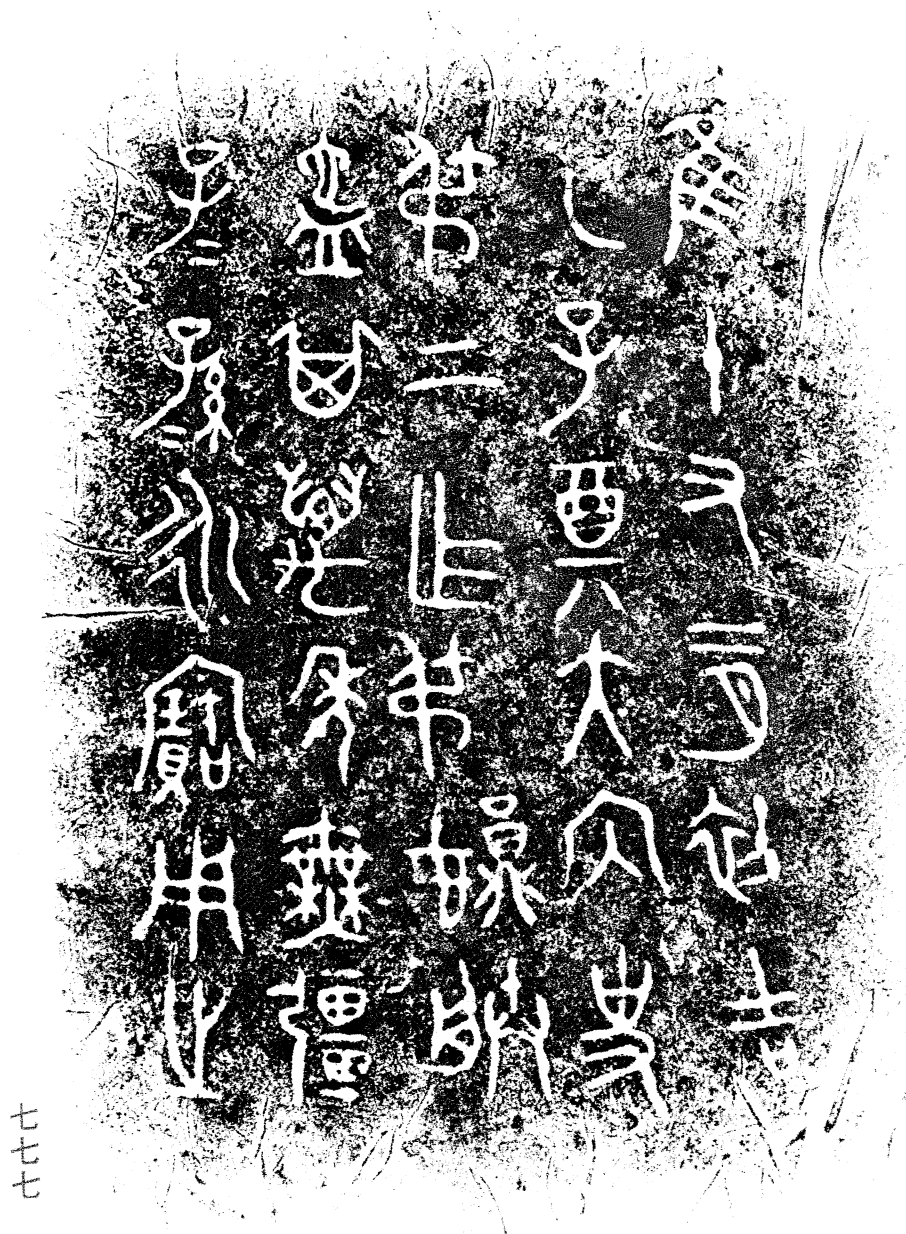 隹十又二月初吉
乙子奠大內史
弔上乍弔娟媵
匜其萬年無疆
子=孫=永寶用之
七七七